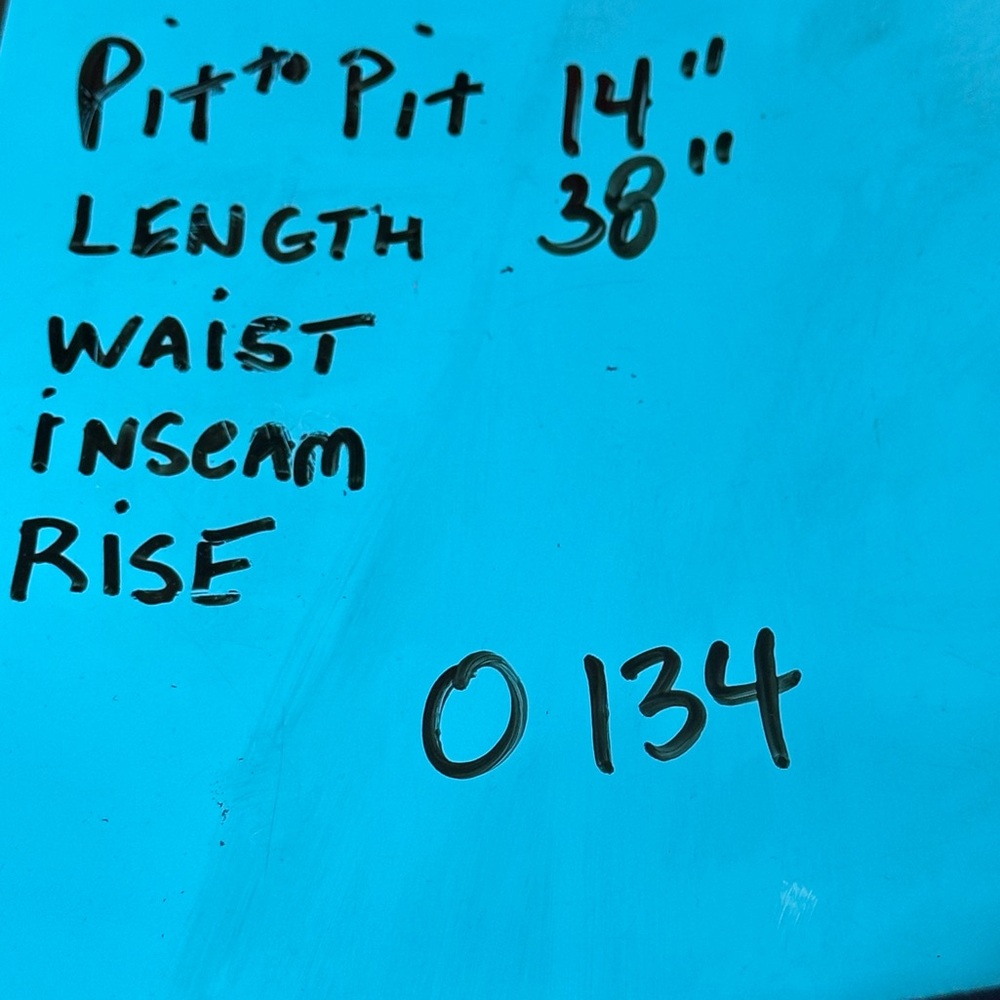 Pit to Pit 14"
LENGTH 38"
WAiST
iNSeAm
RiSE
0134